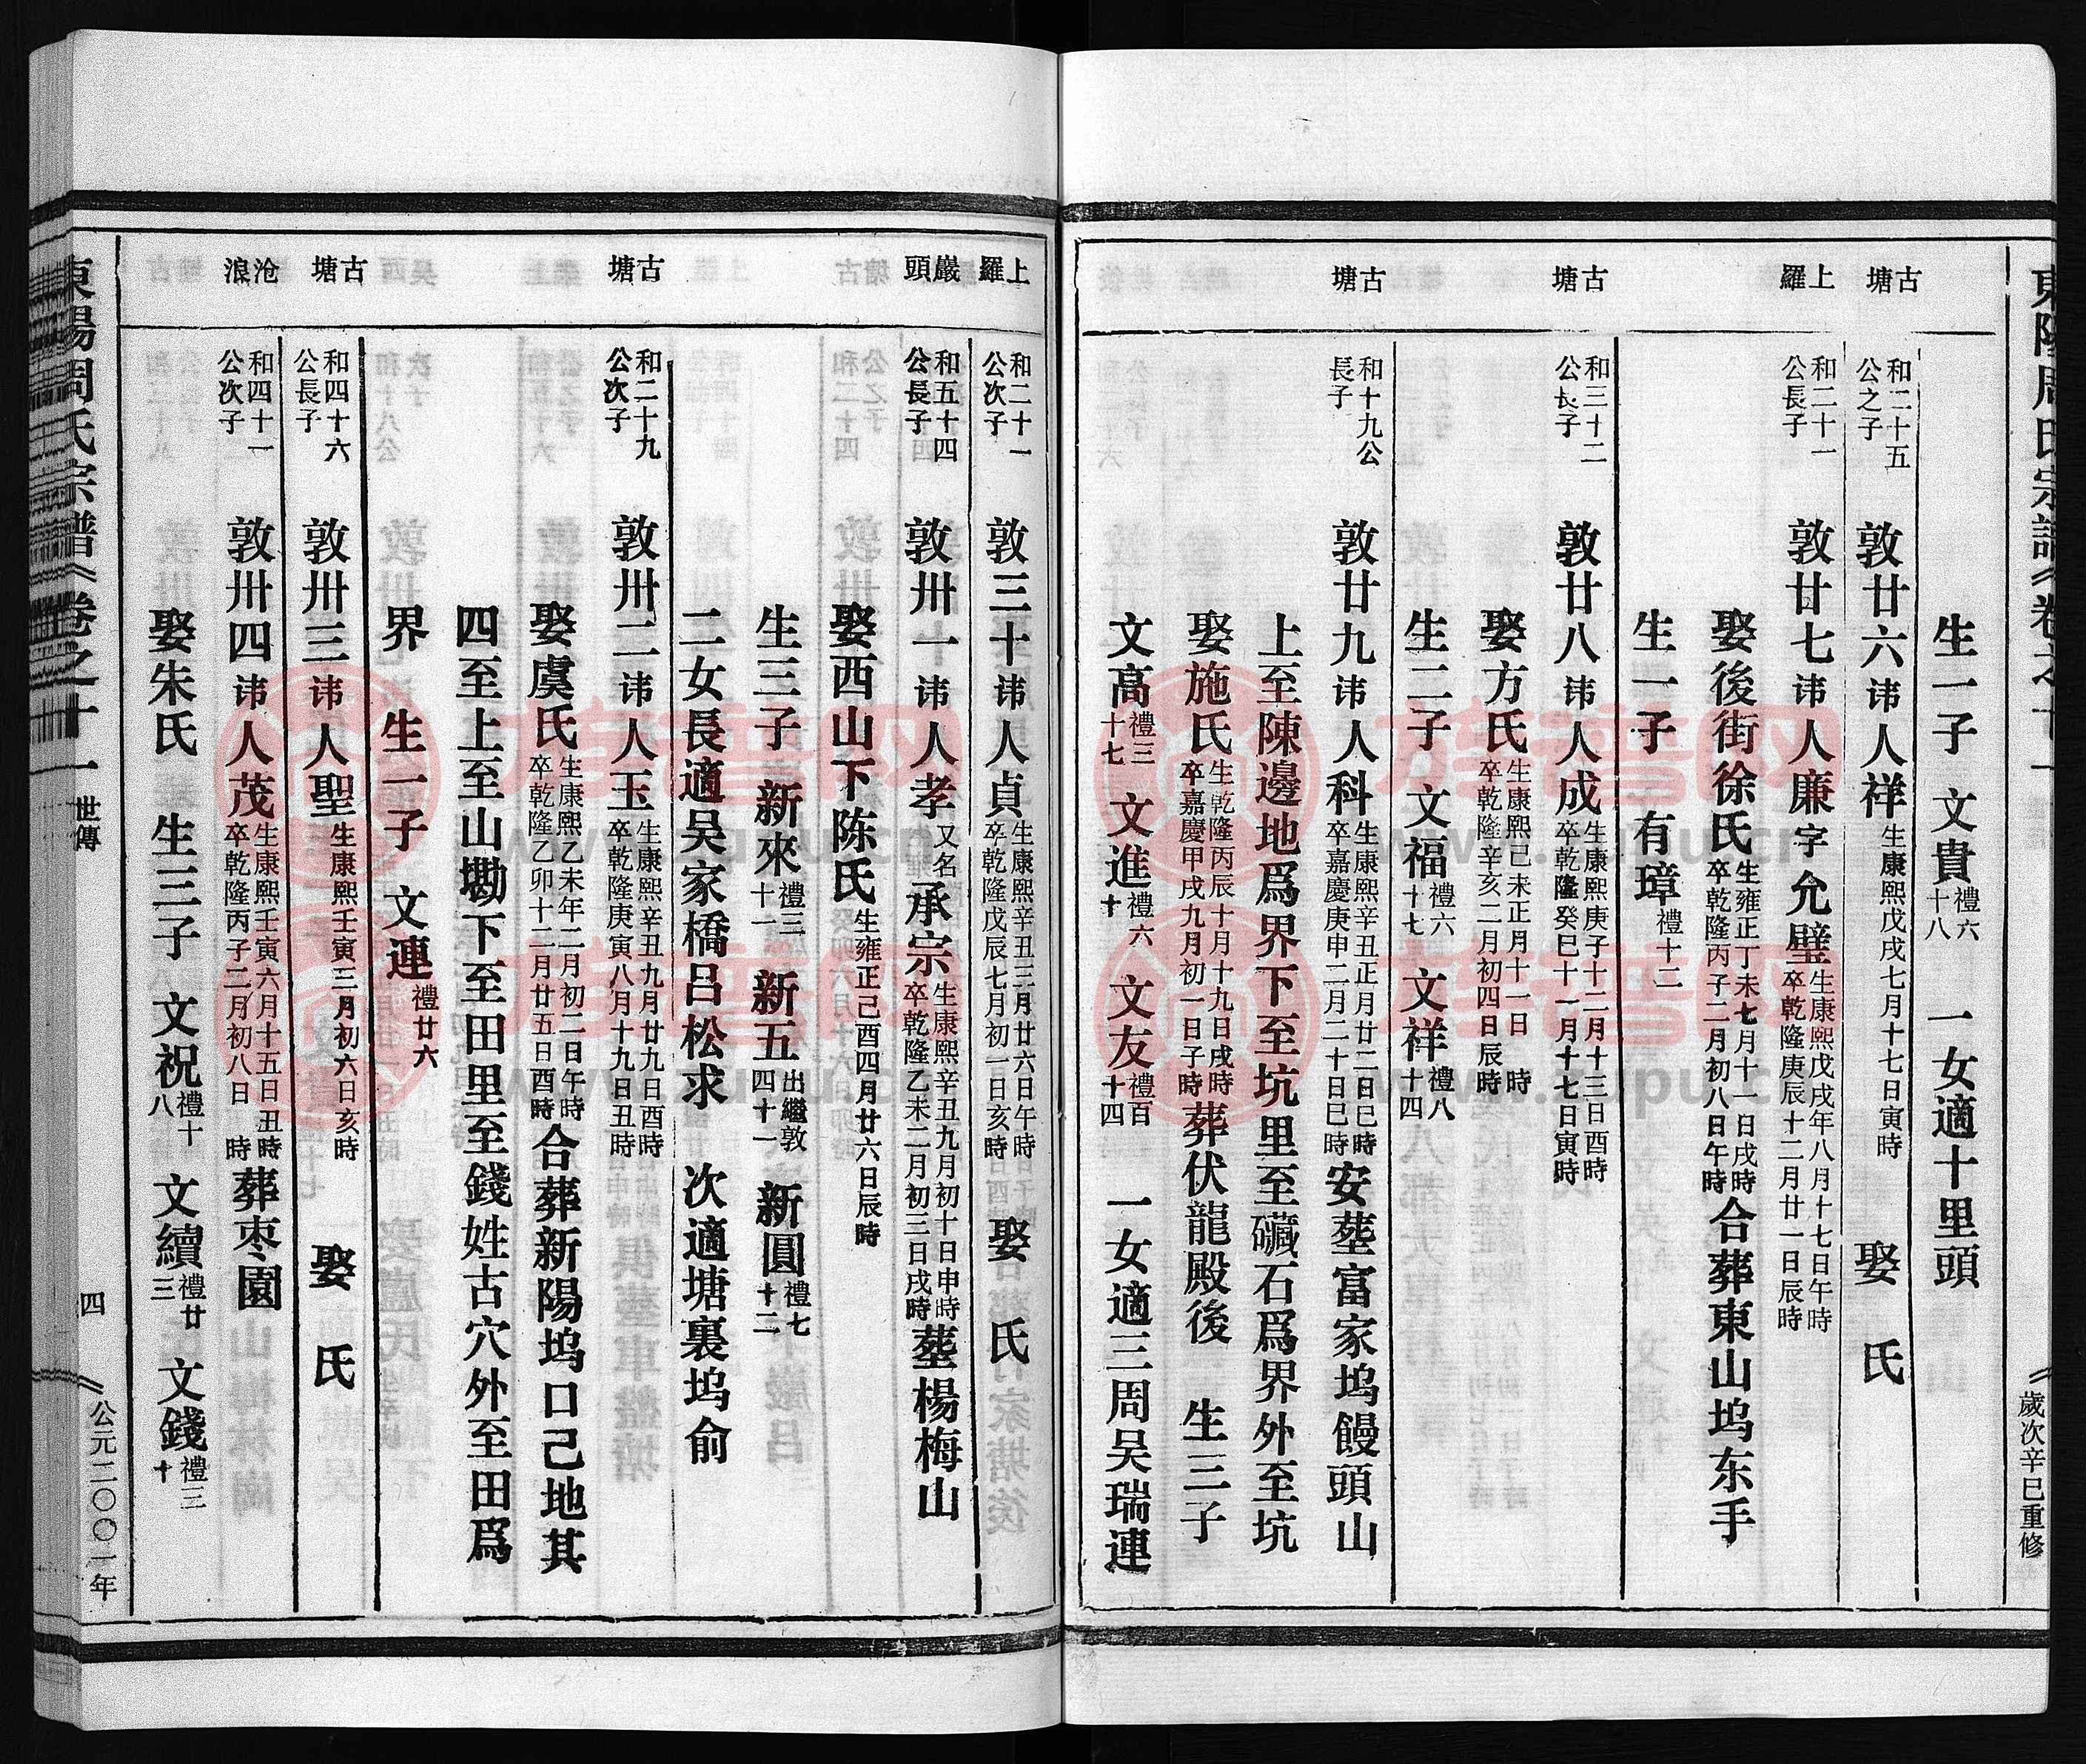 東陽周氏宗譜《卷之十一
《歲次辛巳重修
生一子 文貴禮六十八 一女適十里頭
古塘
和二十五公之子
敦廿六讳人祥生康熙戊戌七月十七日寅時 娶 氏
上羅
和二十一公長子
敦廿七讳人廉字允璧生康熙戊戌年八月十七日午時卒乾隆庚辰十二月廿一日辰時
娶後街徐氏生雍正丁未七月十一日戌時卒乾隆丙子二月初八日午時合葬東山塢东手
生一子 有璋禮十二
古塘
和三十二公长子
敦廿八讳人成生康熙庚子十二月十三日酉時卒乾隆癸巳十一月十七日寅時
娶方氏生康熙己未正月十一日 時卒乾隆辛亥二月初四日辰時
生二子 文福禮六十七 文祥禮八十四
古塘
和十九公長子
敦廿九讳人科生康熙辛丑正月廿二日巳時卒嘉慶庚申二月二十日巳時安塟富家塢饅頭山
上至陳邊地爲界下至坑里至礮石爲界外至坑
娶施氏生乾隆丙辰十月十九日戌時卒嘉慶甲戌九月初一日子時葬伏龍殿後 生三子
文高禮三十七 文進禮六十 文友禮百十四 一女適三周吴瑞連
上羅
和二十一公次子
敦三十讳人貞生康熙辛丑三月廿六日午時卒乾隆戊辰七月初一日亥時 娶 氏
巖頭
和五十四公長子
敦卅一讳人孝又名承宗生康熙辛丑九月初十日申時卒乾隆乙未二月初三日戌時塟楊梅山
娶西山下陈氏生雍正己酉四月廿六日辰時
生三子 新來禮三十一 新五出繼敦四十一 新圓禮七十二
二女長適吴家橋吕松求 次適塘裏塢俞
古塘
和二十九公次子
敦卅二讳人玉生康熙辛丑九月廿九日酉時卒乾隆庚寅八月十九日丑時
娶虞氏生康熙乙未年二月初二日午時卒乾隆乙卯十二月廿五日酉時合葬新陽塢口己地其
四至上至山墈下至田里至錢姓古穴外至田爲
界 生一子 文連禮廿六
古塘
和四十六公長子
敦卅三讳人聖生康熙壬寅三月初六日亥時 娶 氏
沧浪
和四十一公次子
敦卅四讳人茂生康熙壬寅六月十五日丑時卒乾隆丙子二月初八日 時葬枣園
娶朱氏 生三子 文祝禮十八 文續禮廿三 文錢禮三十
東陽周氏宗譜《卷之十一 世傳 四 《公元二〇〇一年
族譜网
www.zupu.cn